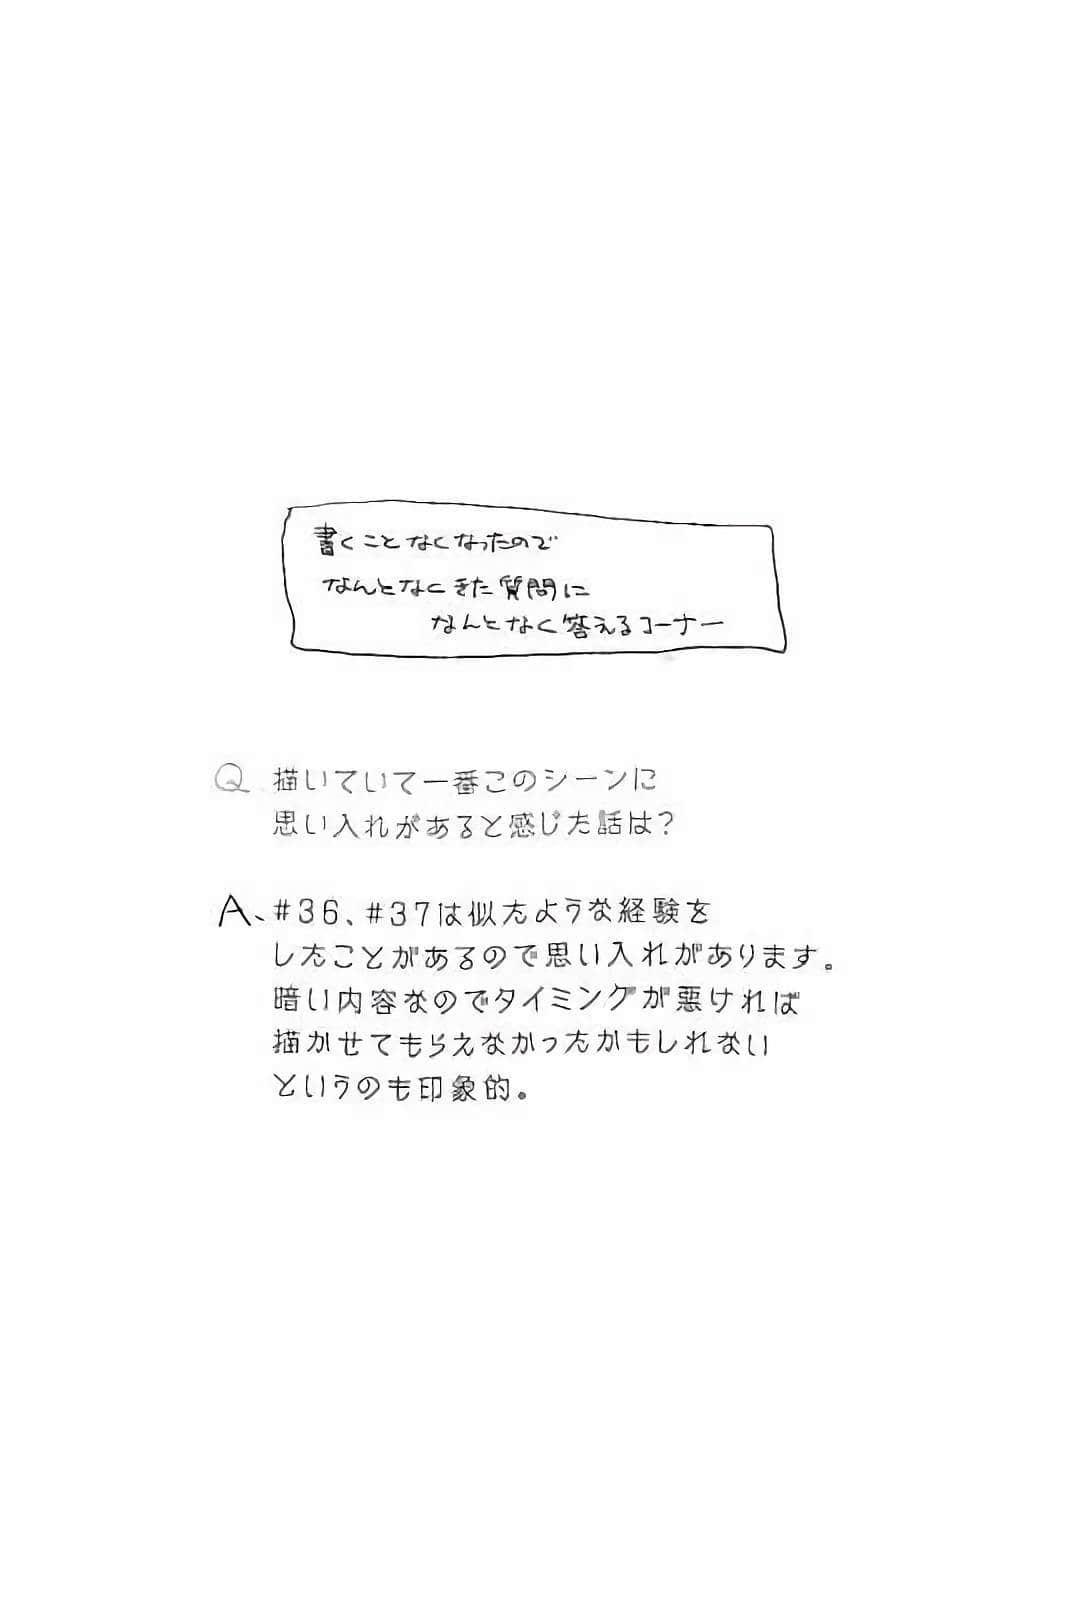 書くことなくなったので
なんとなくきた質問に
なんとなく答えるコーナー
Q 描いていて一番このシーンに
思い入れがあると感じた話は？
A、#36、#37は似たような経験を
したことがあるので思い入れがあります。
暗い内容なのでタイミングが悪ければ
描かせてもらえなかったかもしれない
というのも印象的。